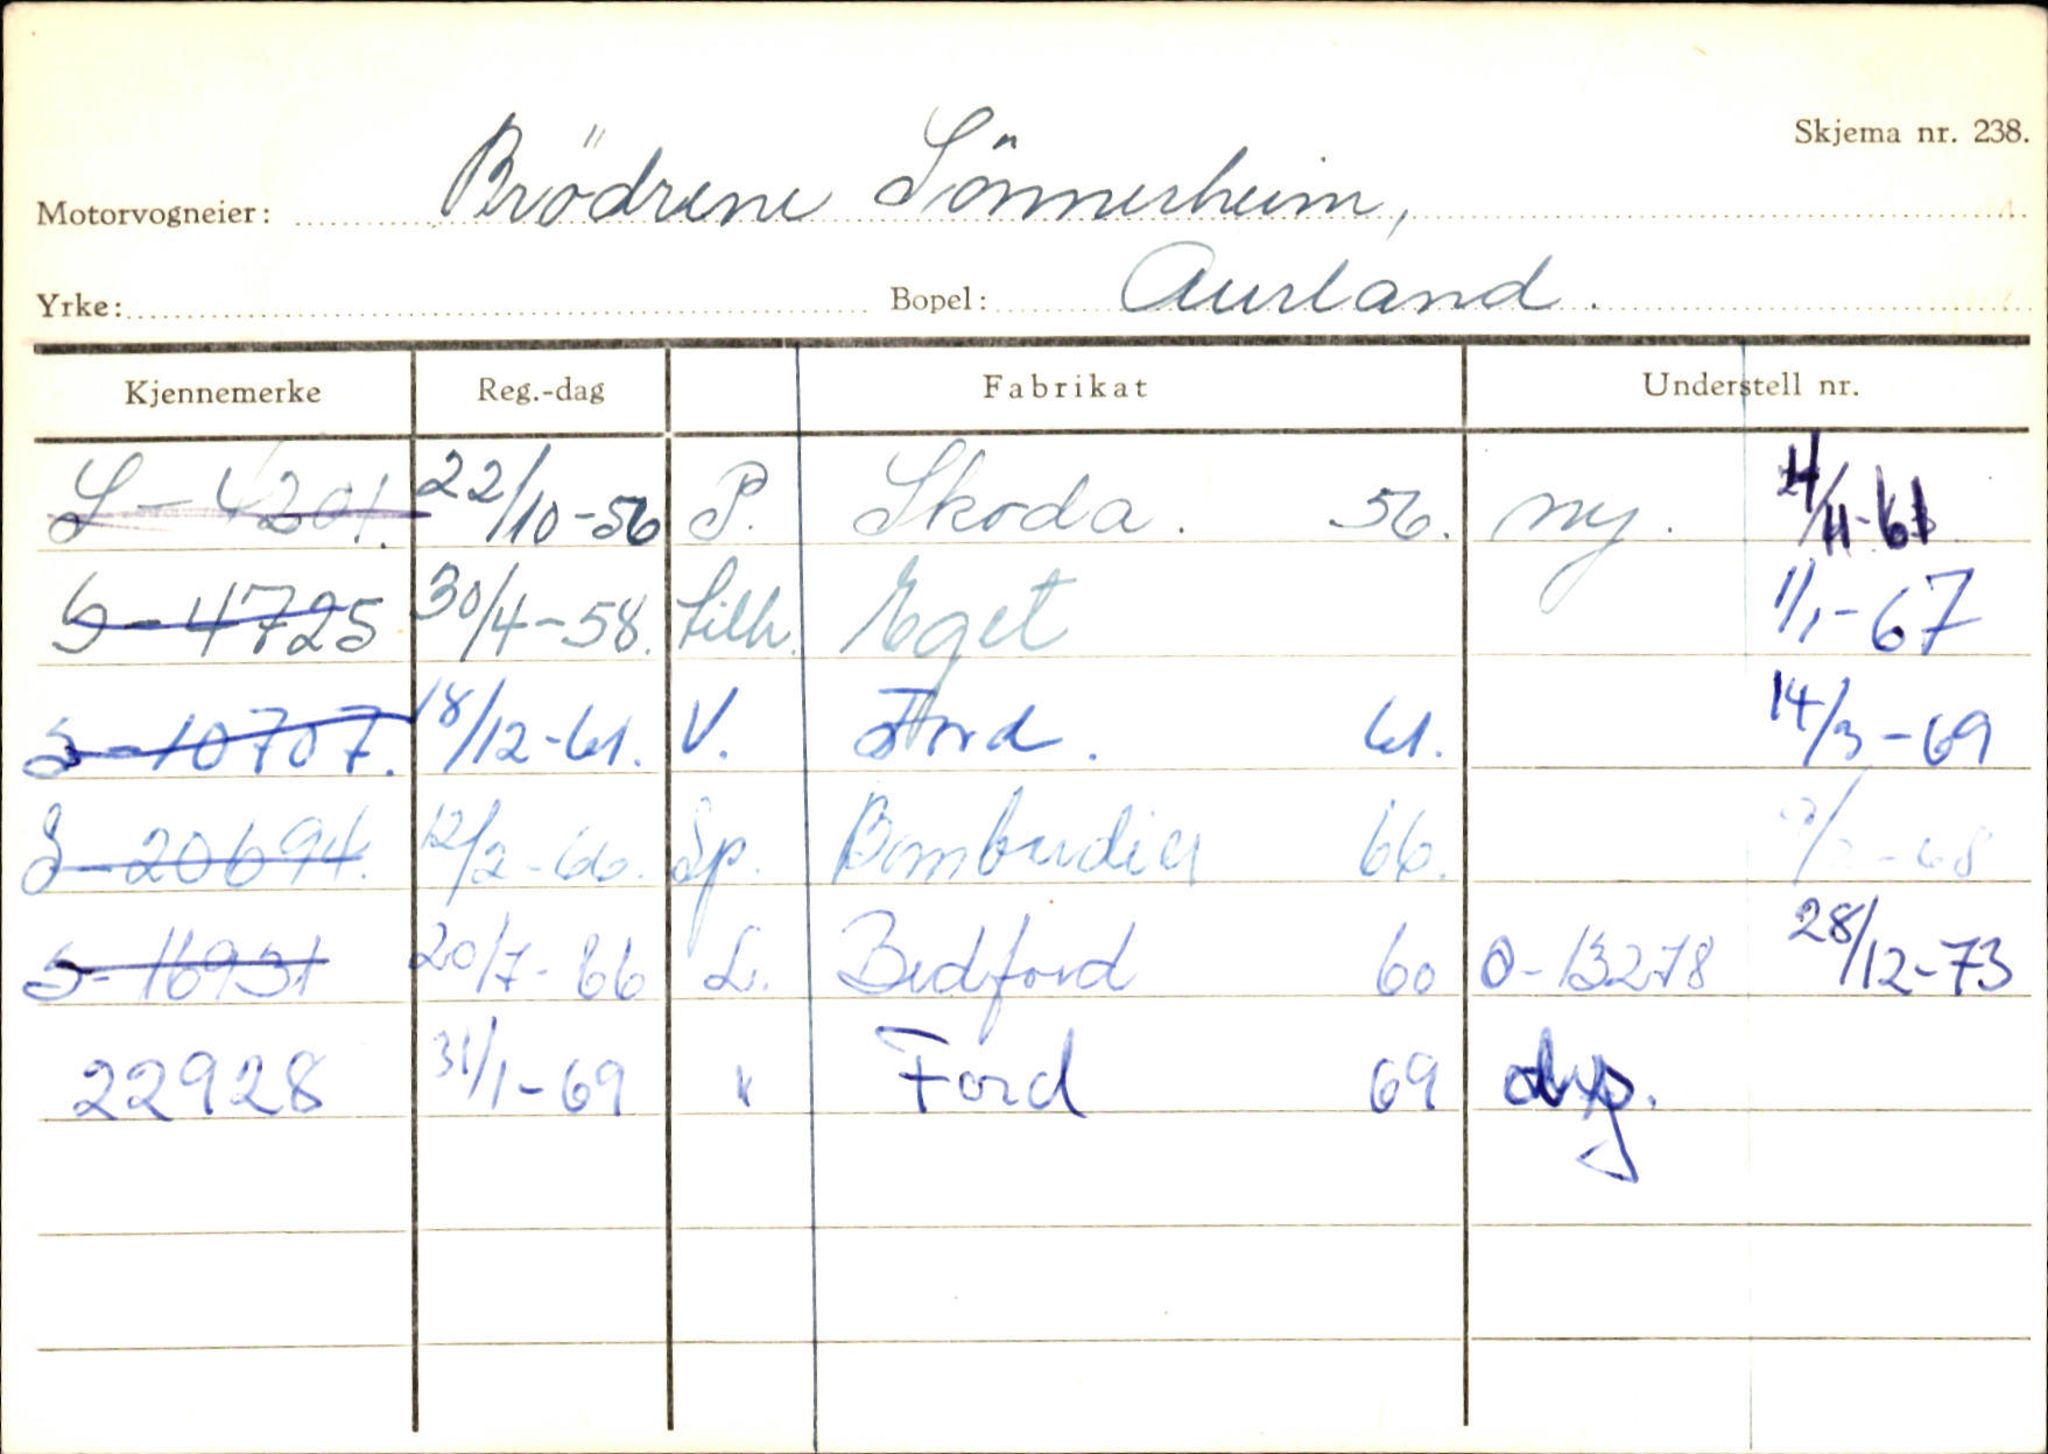 Skjema nr. 238.
Motorvogneier: Brödrene Sönnerheim,
Yrke: Bopel: Aurland.
Kjennemerke Reg.-dag Fabrikat Understell nr.
S-4201. 22/10-56 P. Skoda. 56. ny. /11-61
S-4725 30/4-58. Tilh. Eget 1/1-67
S-10707. 18/12-61. V. Ford. 61. 14/3-69
S-20694. 12/2-66. Sp. Bombardier 66. /2-68
S-16931 20/7-66 L. Bedford 60 O-13278 28/12-73
22928 31/1-69 Ford 69